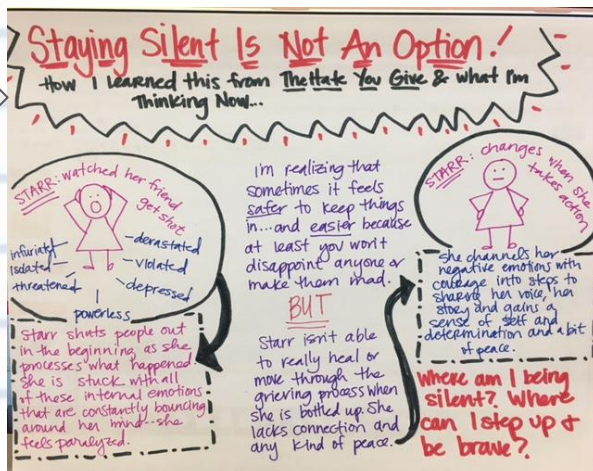 Staying Silent Is Not An Option!
How I learned this from The Hate You Give & what I'm
Thinking Now...
STARR: watched her friend
get shot
infuriated
isolated
threatened
powerless
devastated
violated
depressed
Starr shuts people out
in the beginning as she
processes what happened.
She is stuck with all
of these internal emotions
that are constantly bouncing
around her mind--she
feels paralyzed.
I'm realizing that
sometimes it feels
safer to keep things
in...and easier because
at least you won't
disappoint anyone or
make them mad.
BUT
Starr isn't able
to really heal or
move through the
grieving process when
she is bottled up. She
lacks connection and
any kind of peace.
STARR: changes when she
takes action
She channels her
negative emotions with
courage into steps to
sharing her voice, her
story and gains a
sense of self and
determination and a bit
of peace.
Where am I being
silent? Where
can I step up &
be brave?